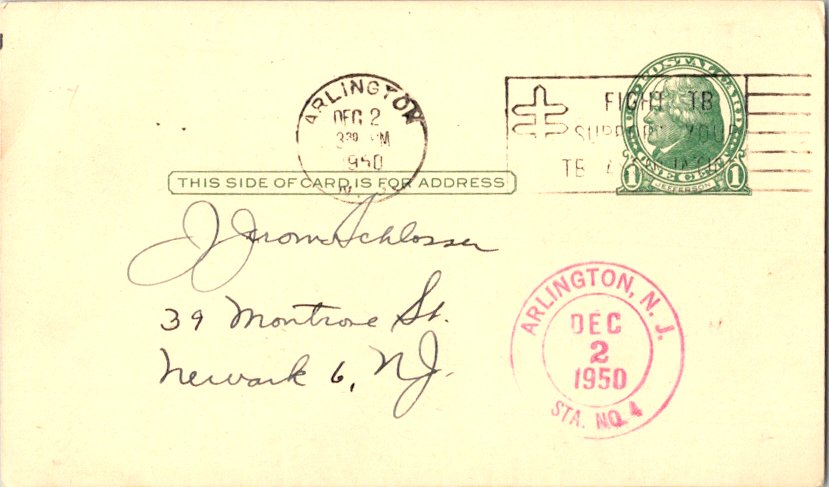 ARLINGTON
DEC 2
1950
FIGHT TB
SUPPORT YOUR
TB
U.S. POSTAL CARD
ONE CENT
1 JEFFERSON 1
THIS SIDE OF CARD IS FOR ADDRESS
J. Jerome Schlosser
39 Montrose St.
Newark 6, N.J.
ARLINGTON, N. J.
DEC
2
1950
STA. NO. 4